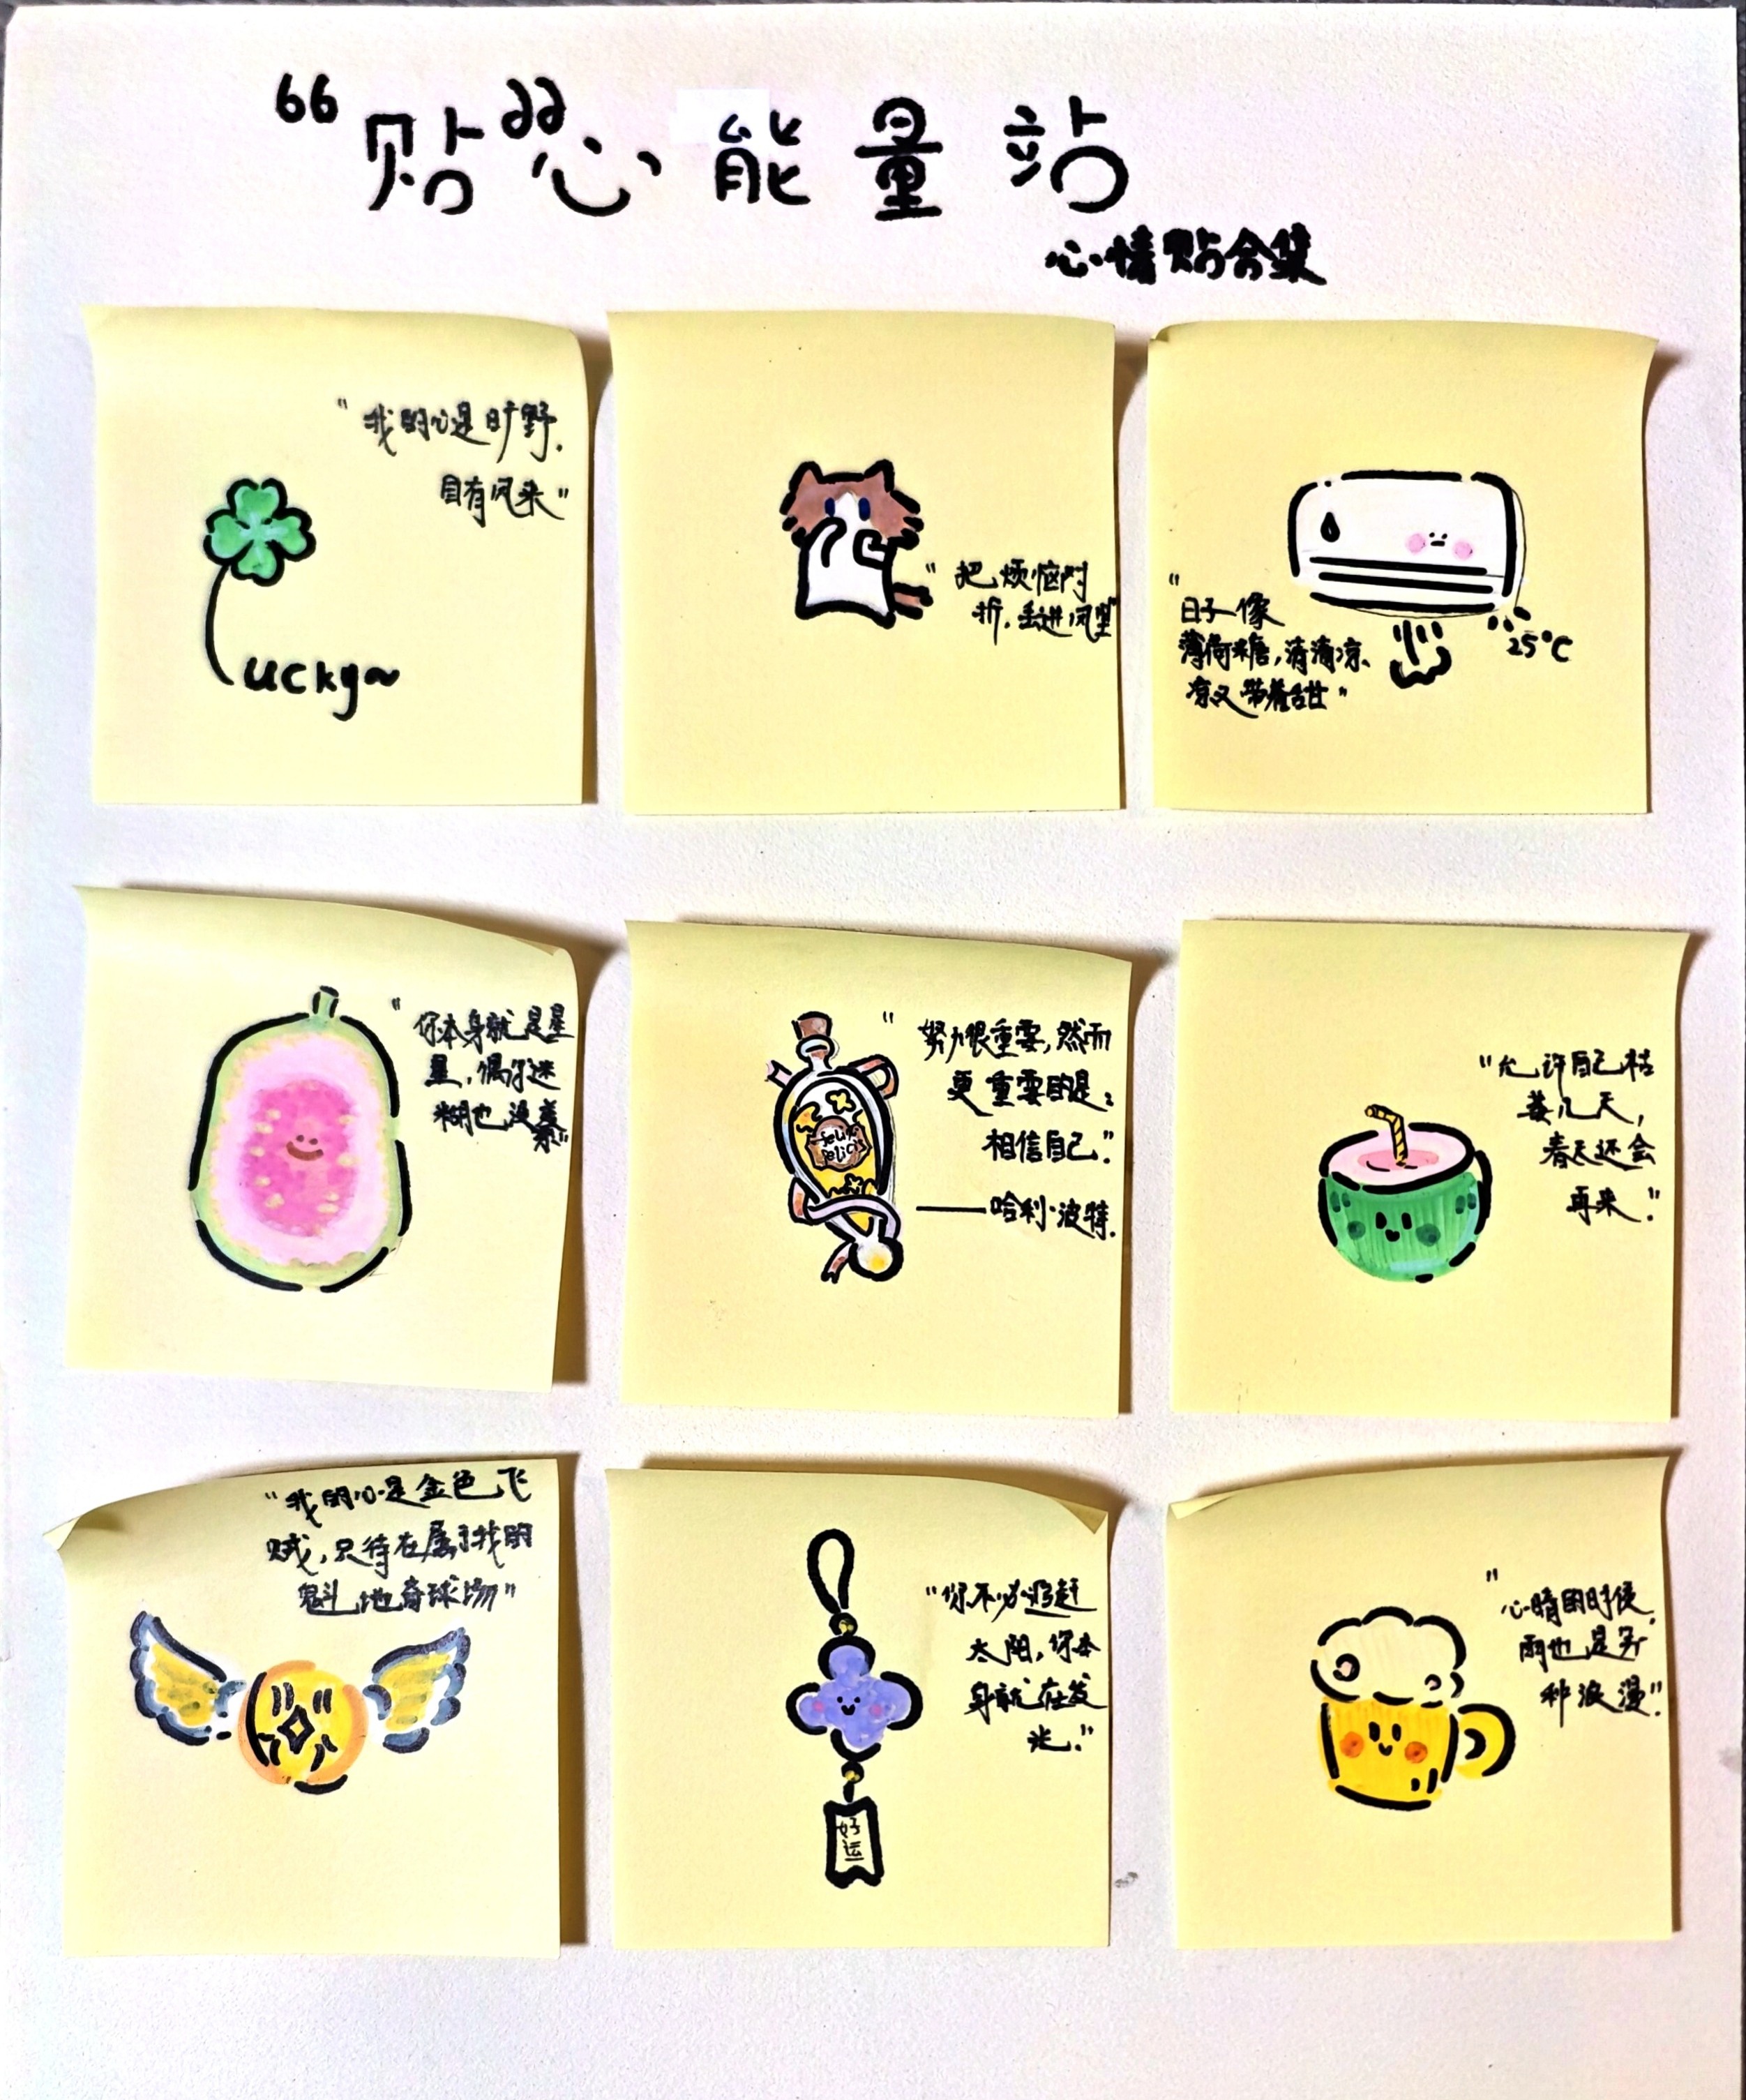 “贴”心能量站
心情贴合集
“我的心是旷野，
自有风来”
Lucky~
“把烦恼对
折，丢进风里”
“日子像
薄荷糖，清清凉
凉又带着甜”
25°C
“你本身就是星
星，偶尔迷
糊也没关
系”
“努力很重要，然而
更重要的是：
相信自己.”
——哈利·波特.
felix
felicis
“允许自己枯
萎几天，
春天还会
再来.”
“我的心是金色飞
贼，只待在属于我的
魁地奇球场”
“你不必追赶
太阳，你本
身就在发
光.”
好
运
“心晴的时候，
雨也是另一
种浪漫.”